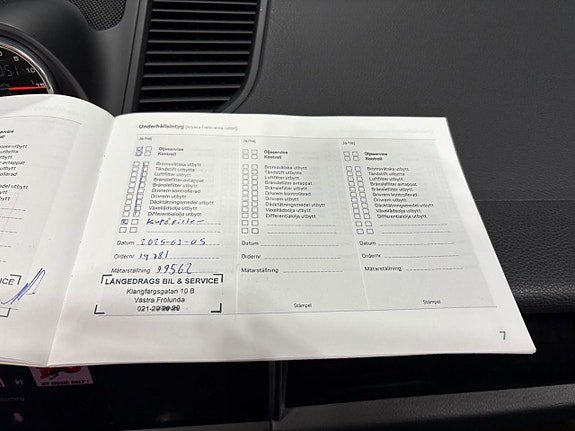 Underhållsintyg (kryssa i relevanta rutor)
Ja/Nej
Oljeservice
Kontroll
Bromsvätska utbytt
Tändstift utbytta
Luftfilter utbytt
Bränslefilter avtappat
Bränslefilter utbytt
Drivrem kontrollerad
Drivrem utbytt
Däcktätningsmedel utbytt
Växellådsolja utbytt
Differentialolja utbytt
Kupéfilter
Datum 2025-03-05
Ordernr
Mätarställning 99562
LÅNGEDRAGS BIL & SERVICE
Klangfärgsgatan 10 B
Västra Frölunda
Ja/Nej
Oljeservice
Kontroll
Bromsvätska utbytt
Tändstift utbytta
Luftfilter utbytt
Bränslefilter avtappat
Bränslefilter utbytt
Drivrem kontrollerad
Drivrem utbytt
Däcktätningsmedel utbytt
Växellådsolja utbytt
Differentialolja utbytt
Datum
Ordernr
Mätarställning
Stämpel
Ja/Nej
Oljeservice
Kontroll
Bromsvätska utbytt
Tändstift utbytta
Luftfilter utbytt
Bränslefilter avtappat
Bränslefilter utbytt
Drivrem kontrollerad
Drivrem utbytt
Däcktätningsmedel utbytt
Växellådsolja utbytt
Differentialolja utbytt
Datum
Ordernr
Mätarställning
Stämpel
7
HIT MUSIC ONLY!